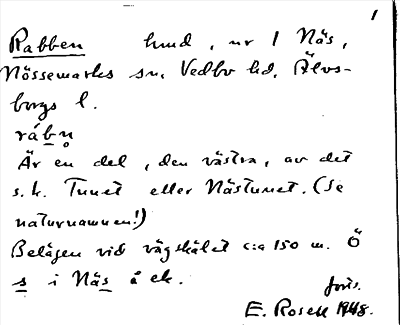 1
Rabben hmd, nr 1 Näs,
Nössemarks sn, Vedbo hd, Älvs-
borgs l.
rábn̥
Är en del, den västra, av det
s.k. Tunet eller Nästunet. (Se
naturnamnen!)
Belägen vid vägskälet c:a 150 m. Ö
s i Näs å ek.
fonis.
E. Rosell 1948.